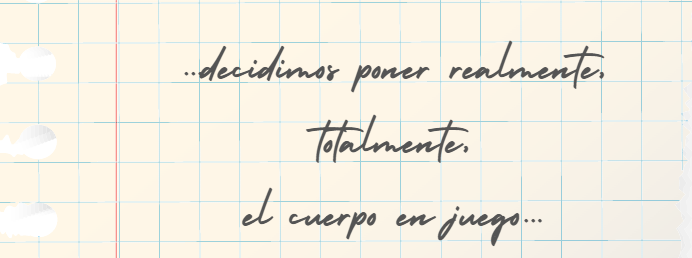 ..decidimos poner realmente,
totalmente,
el cuerpo en juego...